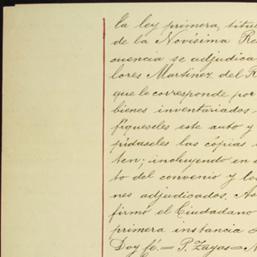 la ley primera, títu
de la Novísima Re
cuencia se adjudica
lores Martinez del R
que le corresponde por
bienes inventariados
fíqueseles este auto y
pídaseles las cópias
ten; incluyendo en
to del convenio y lo
nes adjudicados. A
firmó el Ciudadano
primera instancia
Doy fé. = P. Zayas =